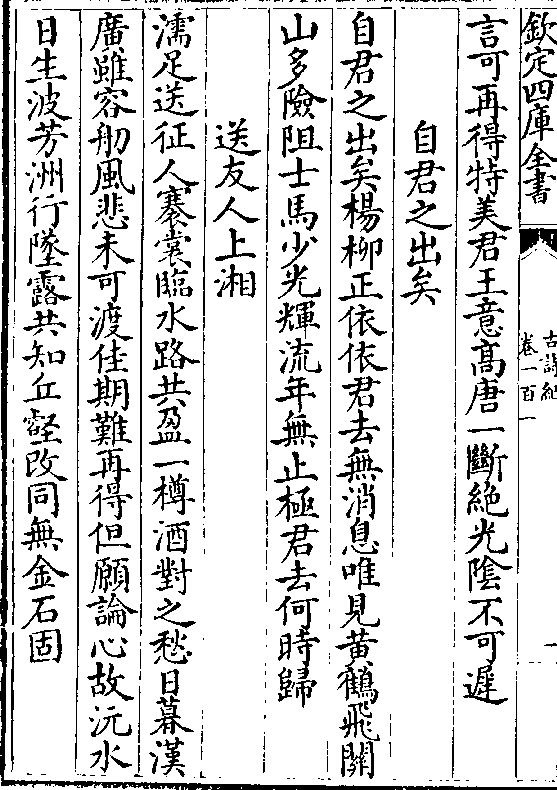 欽定四庫全書
古詩紀
卷一百一
言可再得特美君王意髙唐一斷絶光陰不可遲
自君之出矣
自君之出矣楊柳正依依君去無消息唯見黄鶴飛關
山多險阻士馬少光輝流年無止極君去何時歸
送友人上湘
濡足送征人褰裳臨水路共盈一樽酒對之愁日暮漢
廣雖容舠風悲未可渡佳期難再得但願論心故沅水
日生波芳洲行墜露共知丘壑改同無金石固